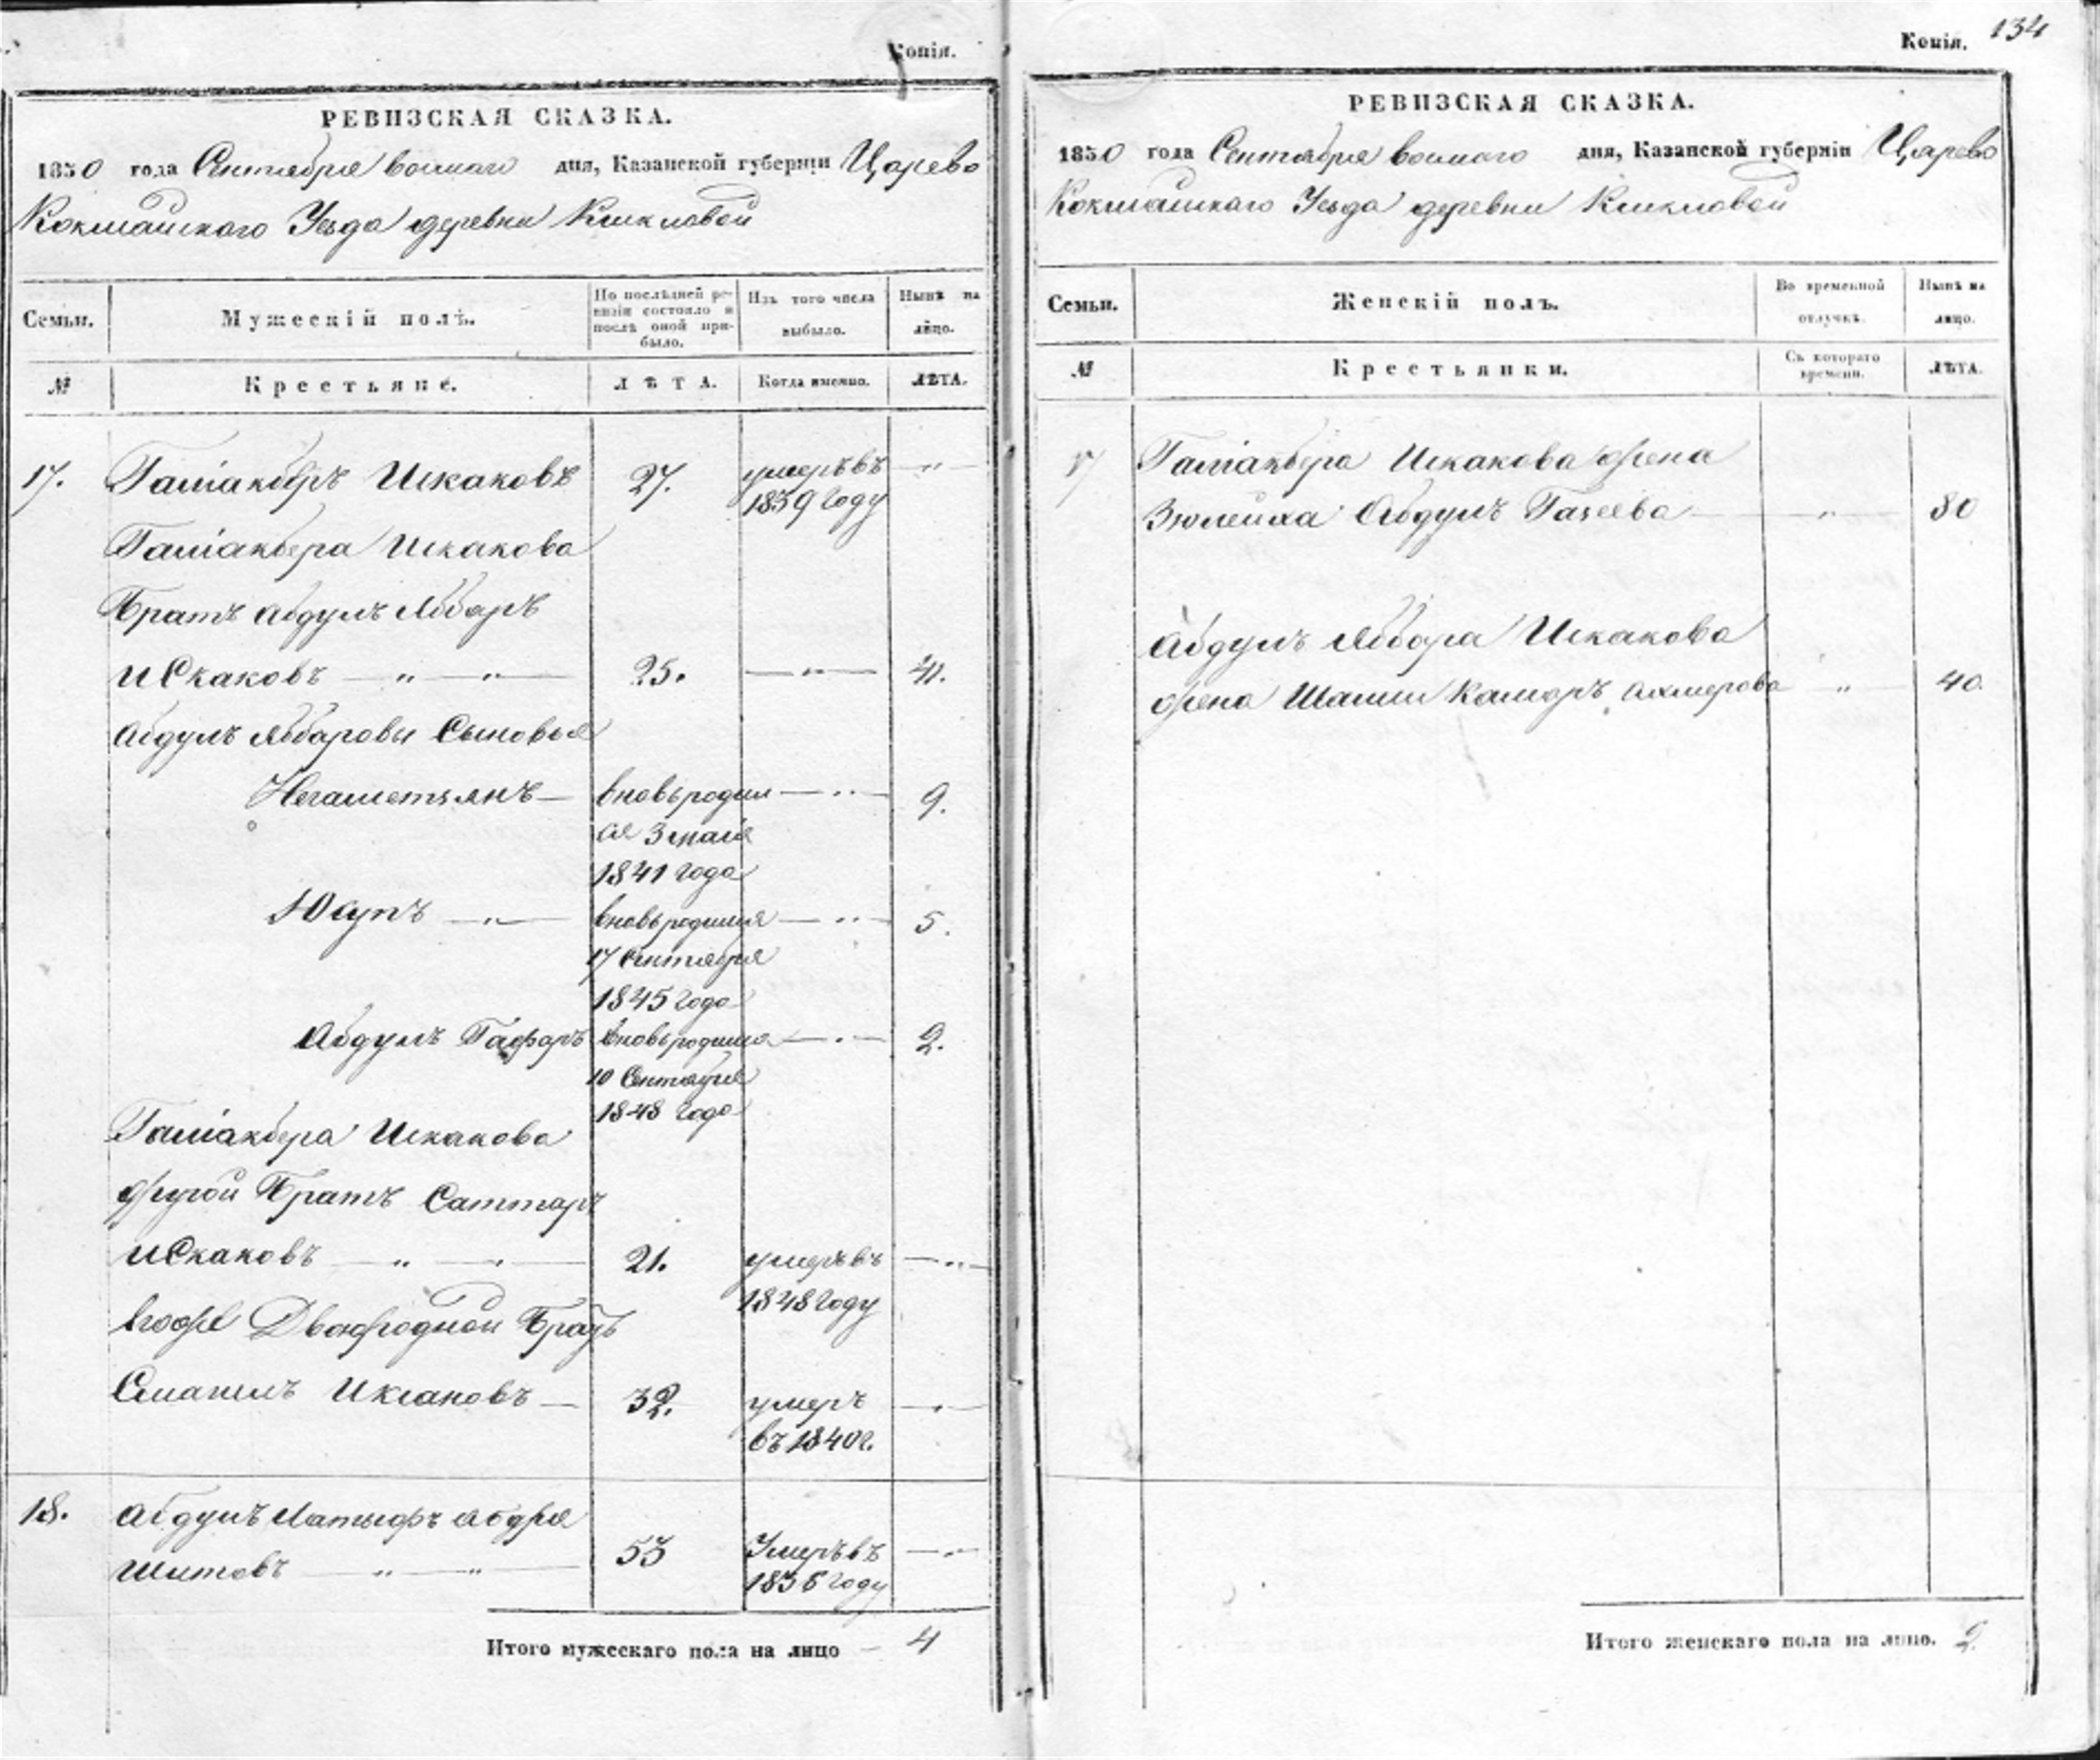 Копія.
РЕВИЗСКАЯ СКАЗКА.
1850 года Сентября восмаго дня, Казанской губерніи Царево
Кокшайскаго Уезда деревни
Семьи. Мужескій полъ. По послѣдней ре-
визіи состояло и
послѣ оной при-
было. Изъ того числа
выбыло. Нынѣ на
лицо.
№ Крестьяне. ЛѢТА. Когда именно. ЛѢТА.
17. Галіакберъ Искаковъ 27. умеръ въ — " —
1839 году
Галіакбера Искакова
Братъ Абдулъ Ябборъ
Искаковъ — " — " — 25. — " — 41.
Абдулъ Ябборовы Сыновья
Негаметзянъ — вновь родил — " — 9.
ся 3 маія
1841 года
Юсупъ — " — вновь родился — " — 5.
17 Сентября
1845 года
Абдулъ Гафаръ вновь родился — " — 2.
10 Сентября
1848 года
Галіакбера Искакова
другой Братъ Саттаръ
Искаковъ — " — " — 21. умеръ въ — " —
1848 году
Егоже Двоюродной Братъ
Смагилъ Иксановъ — 32. умеръ — " —
въ 1840 г.
18. Абдулъ Латыфъ Абдря
шитовъ — " — " — 53 Умеръ въ — " —
1836 году
Итого мужескаго пола на лицо — 4
Копія. 134
РЕВИЗСКАЯ СКАЗКА.
1850 года Сентября восмаго дня, Казанской губерніи Царево
Кокшайскаго Уезда деревни
Семьи. Женскій полъ. Во временной
отлучкѣ. Нынѣ на
лицо.
№ Крестьянки. Съ котораго
времени. ЛѢТА.
17 Галіакбера Искакова жена
Зюлейха Абдулъ Газеева — " — 80
Абдулъ Яббора Искакова
жена Шамши Камаръ Ахмерова " 40.
Итого женскаго пола на лицо. 2.